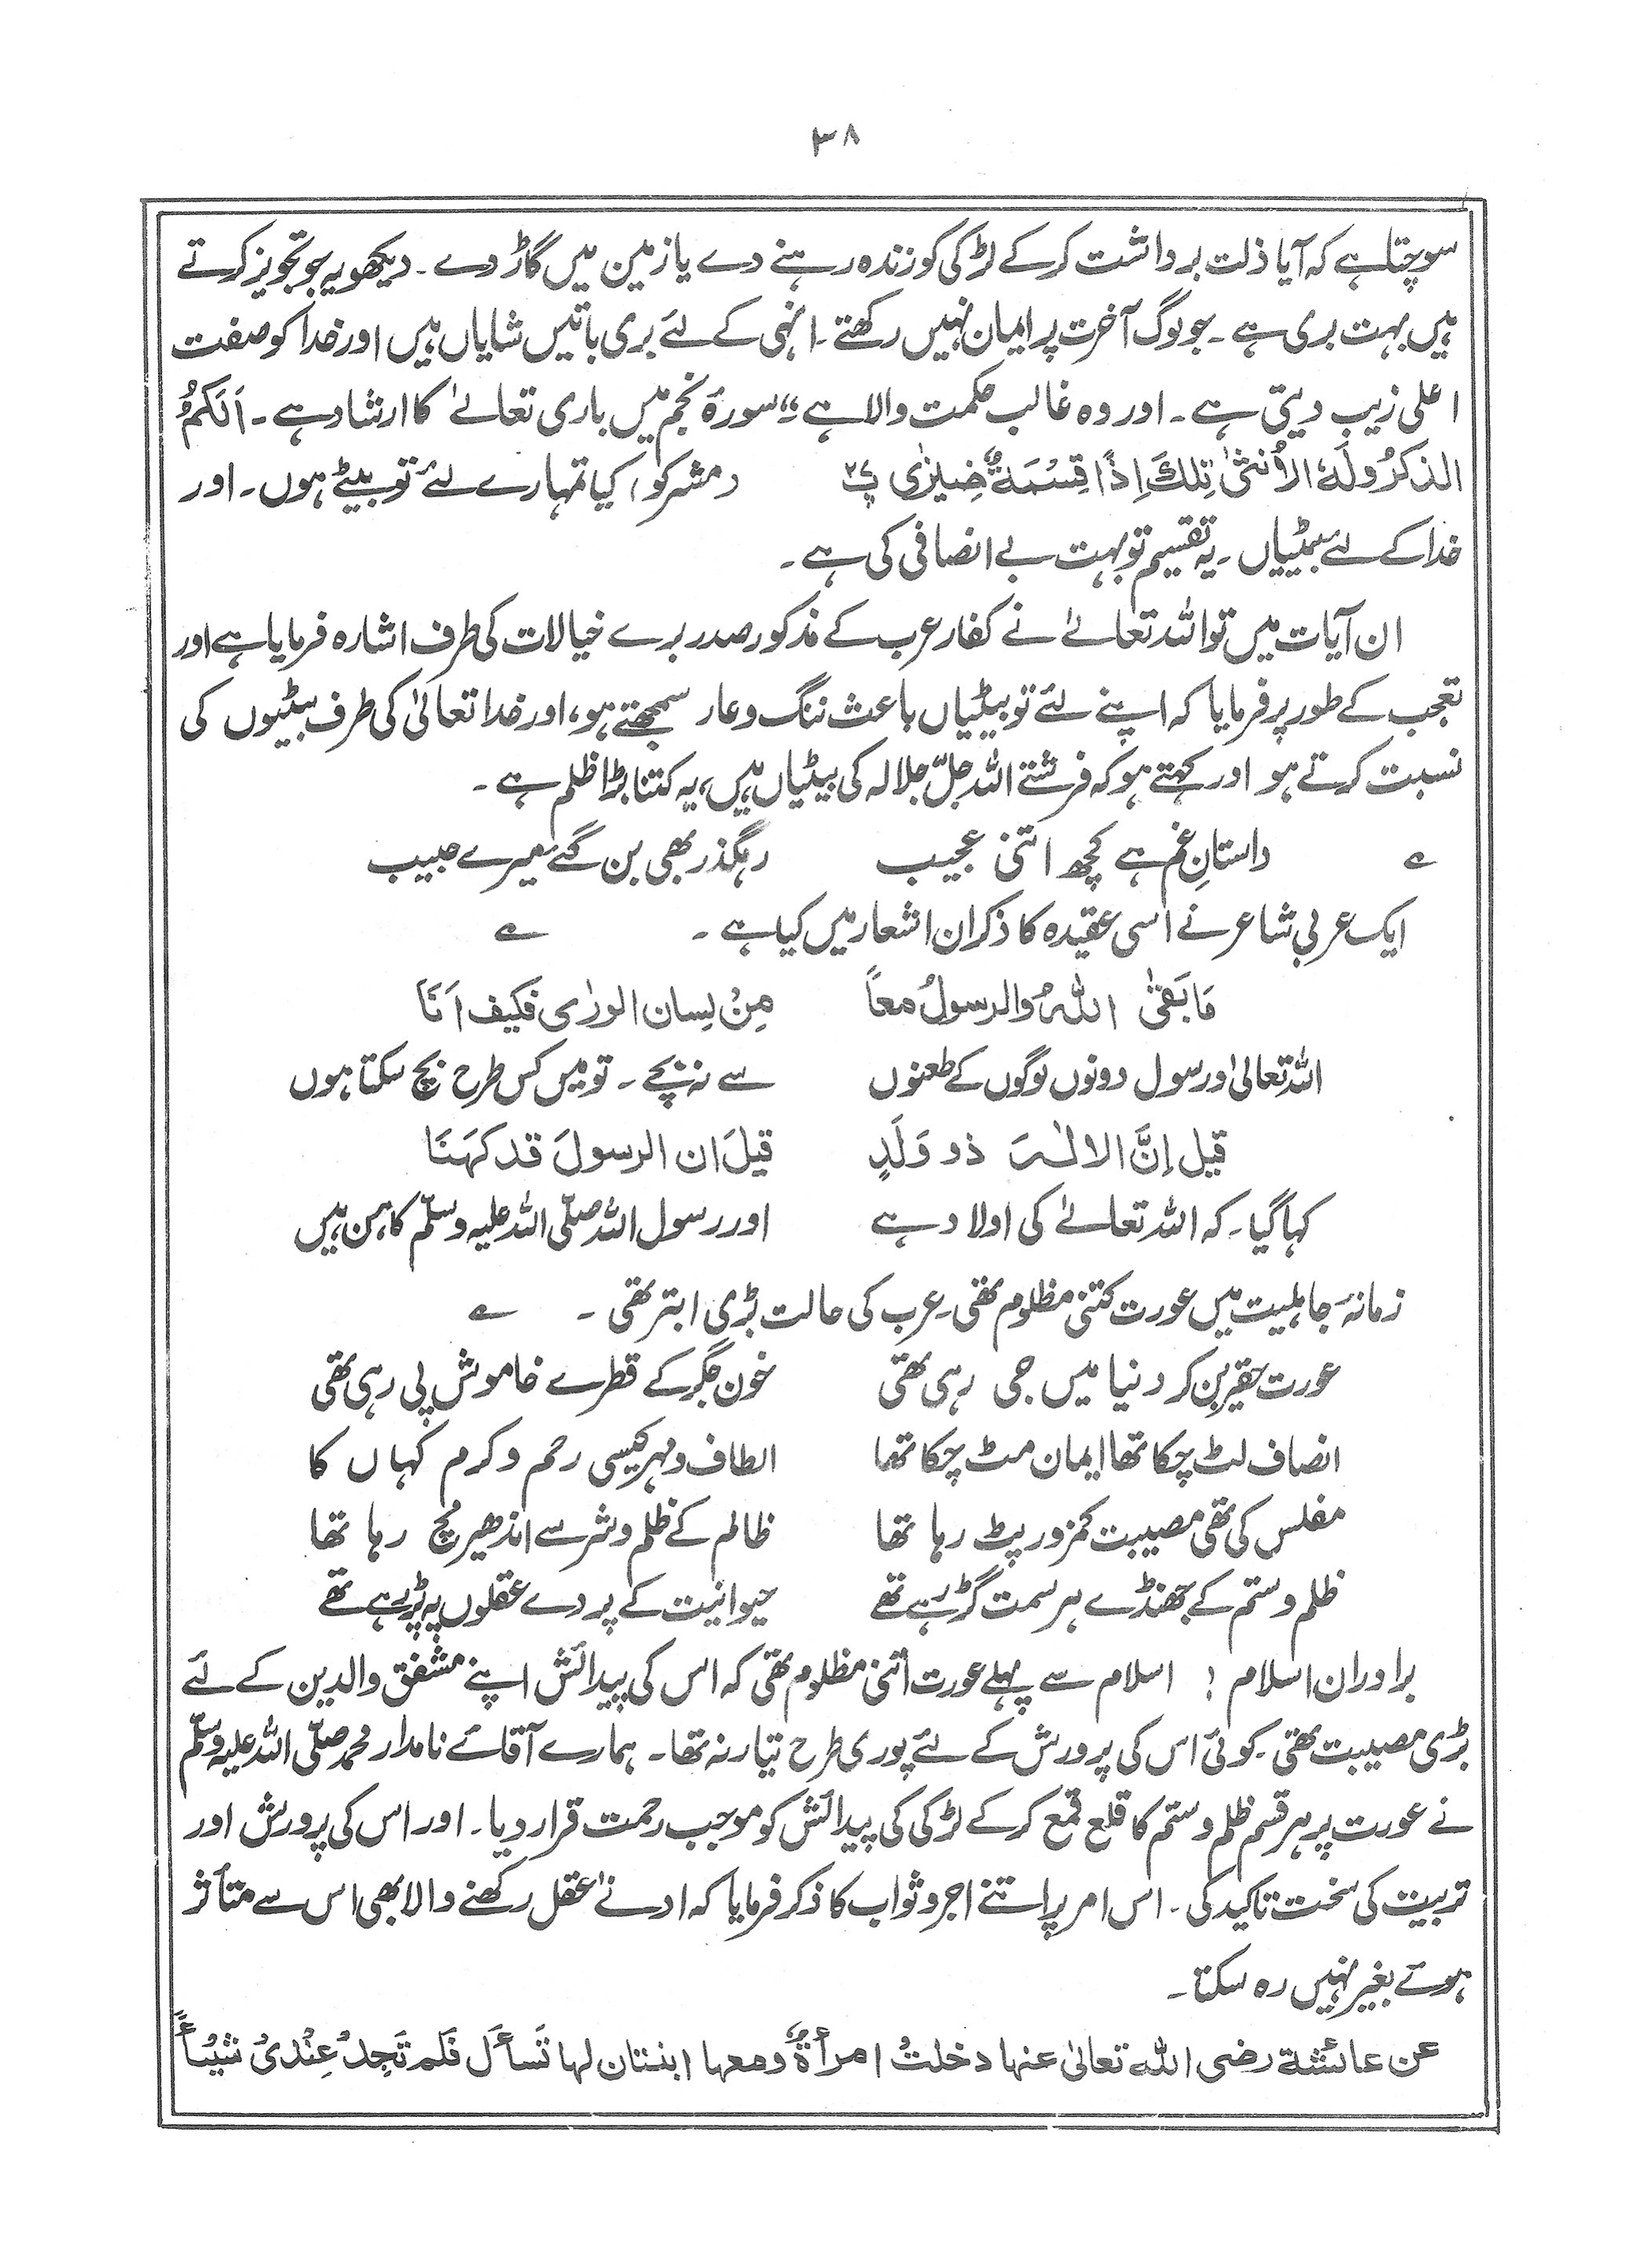 ۳۸
سوچتا ہے کہ آیا ذلت برداشت کرکے لڑکی کو زندہ رہنے دے یا زمین میں گاڑ دے۔ دیکھو یہ جو تجویز کرتے
ہیں بہت بری ہے۔ جو لوگ آخرت پر ایمان نہیں رکھتے۔ انہی کے لئے بری باتیں شایاں ہیں اور خدا کو صفت
اعلی زیب دیتی ہے۔ اور وہ غالب حکمت والا ہے“ سورۂ نجم میں باری تعالےٰ کا ارشاد ہے۔ اَلَکُمُ
الذکرُ ولَہُ الاُنثیٰ تِلکَ اِذًا قِسْمَۃٌ ضِیزٰی پ۲۷ (مشرکو) کیا تمہارے لئے تو بیٹے ہوں۔ اور
خدا کے لئے بیٹیاں۔ یہ تقسیم تو بہت بے انصافی کی ہے۔
ان آیات میں تو اللہ تعالےٰ نے کفار عرب کے مذکور صدر برے خیالات کی طرف اشارہ فرمایا ہے اور
تعجب کے طور پر فرمایا کہ اپنے لئے تو بیٹیاں باعث ننگ و عار سمجھتے ہو، اور خدا تعالیٰ کی طرف بیٹیوں کی
نسبت کرتے ہو اور کہتے ہو کہ فرشتے اللہ جلّ جلالہ کی بیٹیاں ہیں، یہ کتنا بڑا ظلم ہے۔
؎ داستانِ غم ہے کچھ اتنی عجیب رہگذر بھی بن گئے میرے حبیب
ایک عربی شاعر نے اسی عقیدہ کا ذکر ان اشعار میں کیا ہے۔ ؎
مَا بَقیٰ اللہُ والرسولُ معاً مِنْ لِسان الورٰی فکیف اَنَا
اللہ تعالیٰ اور سول دونوں لوگوں کے طعنوں سے نہ بچے۔ تو میں کس طرح بچ سکتا ہوں
قیل اِنَّ الالٰہَ ذو وَلَدٍ قیلَ ان الرسولَ قد کہَنَا
کہا گیا۔ کہ اللہ تعالےٰ کی اولاد ہے اور رسول اللہ صلّی اللہ علیہ وسلّم کاہن ہیں
زمانۂ جاہلیت میں عورت کتنی مظلوم تھی۔ عرب کی حالت بڑی ابتر تھی۔ ؎
عورت حقیر بن کر دنیا میں جی رہی تھی خون جگر کے قطرے خاموش پی رہی تھی
انصاف لٹ چکا تھا ایمان مٹ چکا تھا الطاف و مہر کیسی رحم و کرم کہاں کا
مفلس کی تھی مصیبت کمزور پٹ رہا تھا ظالم کے ظلم و شر سے اندھیر مچ رہا تھا
ظلم و ستم کے جھنڈے ہر سمت گڑ رہے تھے حیوانیت کے پردے عقلوں پہ پڑ رہے تھے
برادران اسلام! اسلام سے پہلے عورت اتنی مظلوم تھی کہ اس کی پیدائش اپنے مشفق والدین کے لئے
بڑی مصیبت تھی۔ کوئی اس کی پرورش کے لئے پوری طرح تیار نہ تھا۔ ہمارے آقائے نامدار محمد صلّی اللہ علیہ وسلّم
نے عورت پر ہر قسم ظلم و ستم کا قلع قمع کرکے لڑکی کی پیدائش کو موجب رحمت قرار دیا۔ اور اس کی پرورش اور
تربیت کی سخت تاکید کی۔ اس امر پر اتنے اجر و ثواب کا ذکر فرمایا کہ ادنےٰ عقل رکھنے والا بھی اس سے متأثر
ہوئے بغیر نہیں رہ سکتا۔
عن عائشة رضی اللہ تعالیٰ عنہا دخلتْ امرأۃٌ ومعہا ابنتان لہا تَسأَل فَلم تَجِدْ عِنْدیْ شیْئاً